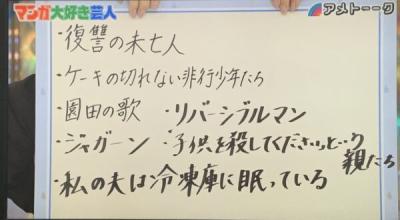 マンガ大好き芸人
アメトーーク
・復讐の未亡人
・ケーキの切れない非行少年たち
・園田の歌 ・リバーシブルマン
・ジャガーン ・子供を殺してくださいと…ク
親たち
・私の夫は冷凍庫に眠っている